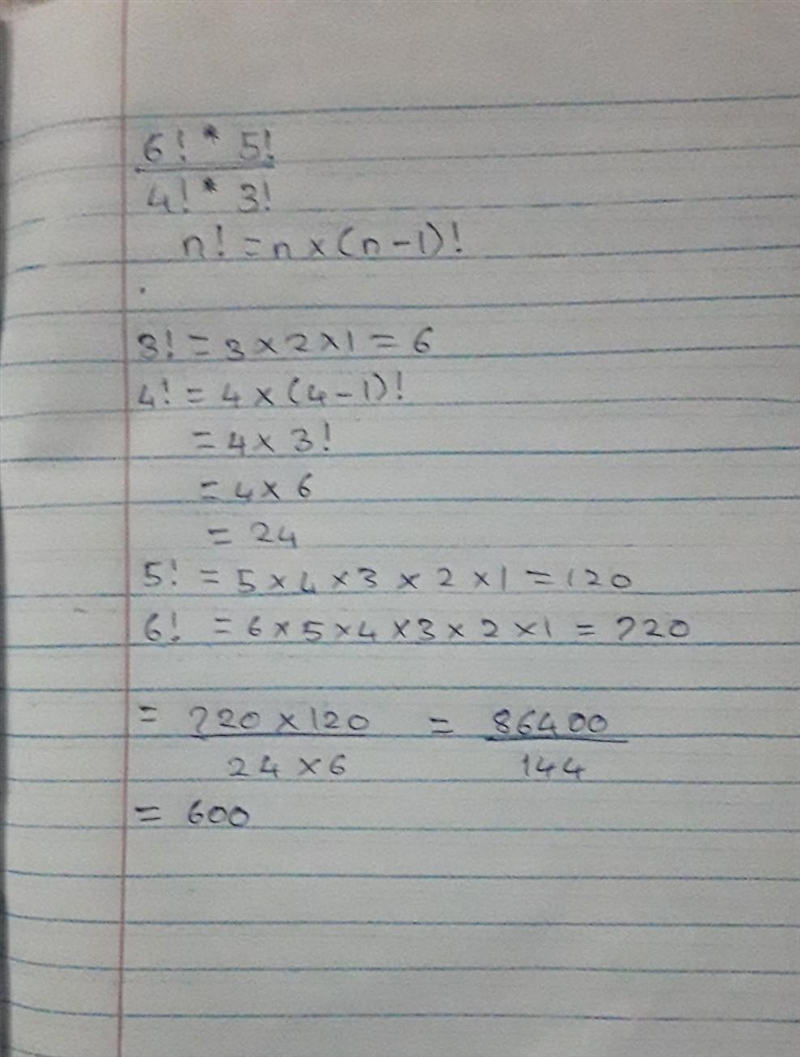 6! * 5!
4! * 3!
n! = n × (n - 1)!
.
3! = 3 × 2 × 1 = 6
4! = 4 × (4 - 1)!
= 4 × 3!
= 4 × 6
= 24
5! = 5 × 4 × 3 × 2 × 1 = 120
6! = 6 × 5 × 4 × 3 × 2 × 1 = 720
= 720 × 120 = 86400
24 × 6 144
= 600